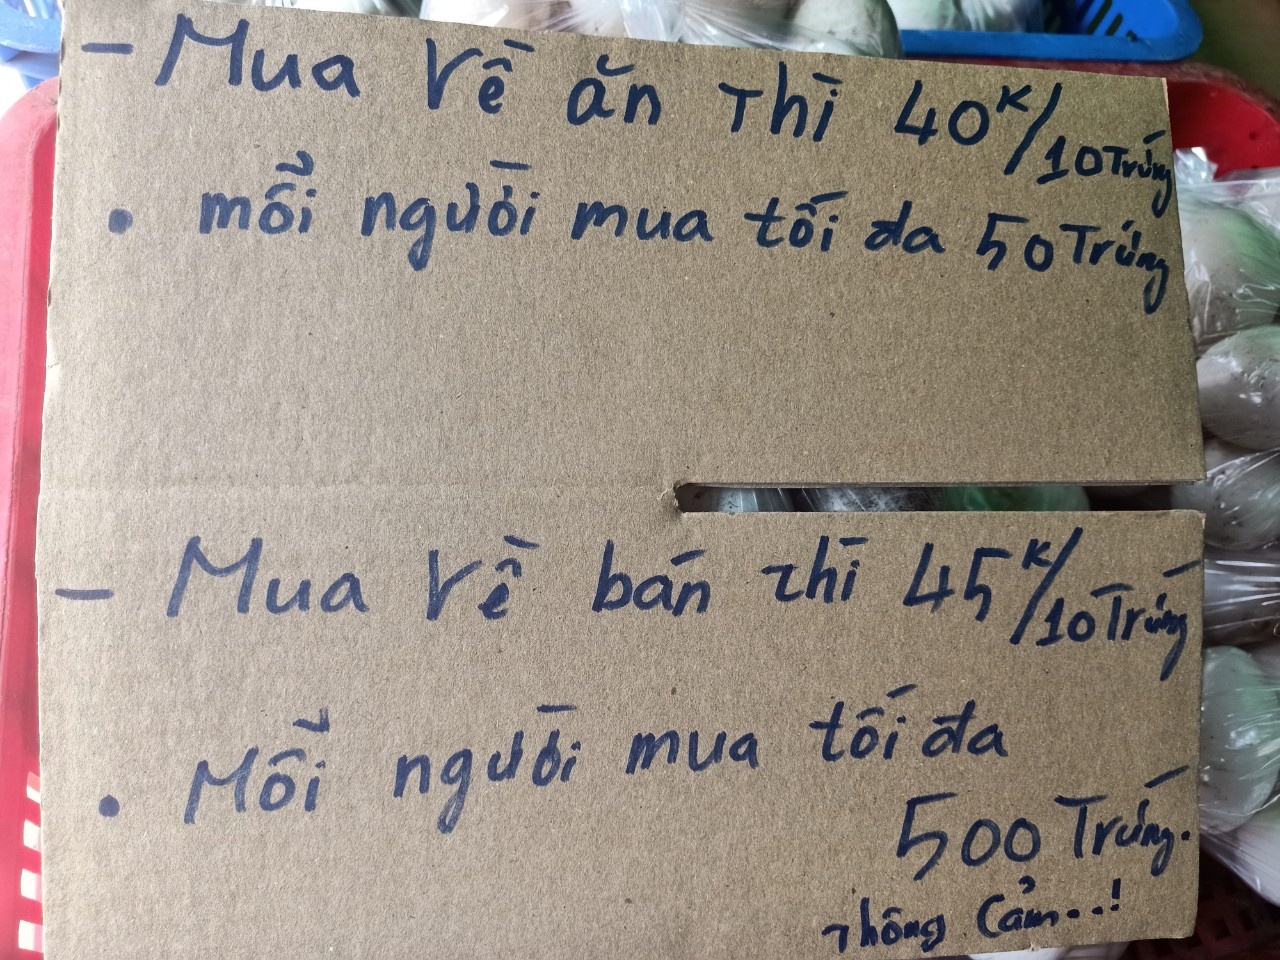 - Mua Về ăn thì 40K/10 Trứng
• mỗi người mua tối đa 50 Trứng
- Mua Về bán thì 45K/10 Trứng
• Mỗi người mua tối đa
500 Trứng.
Thông Cảm...!